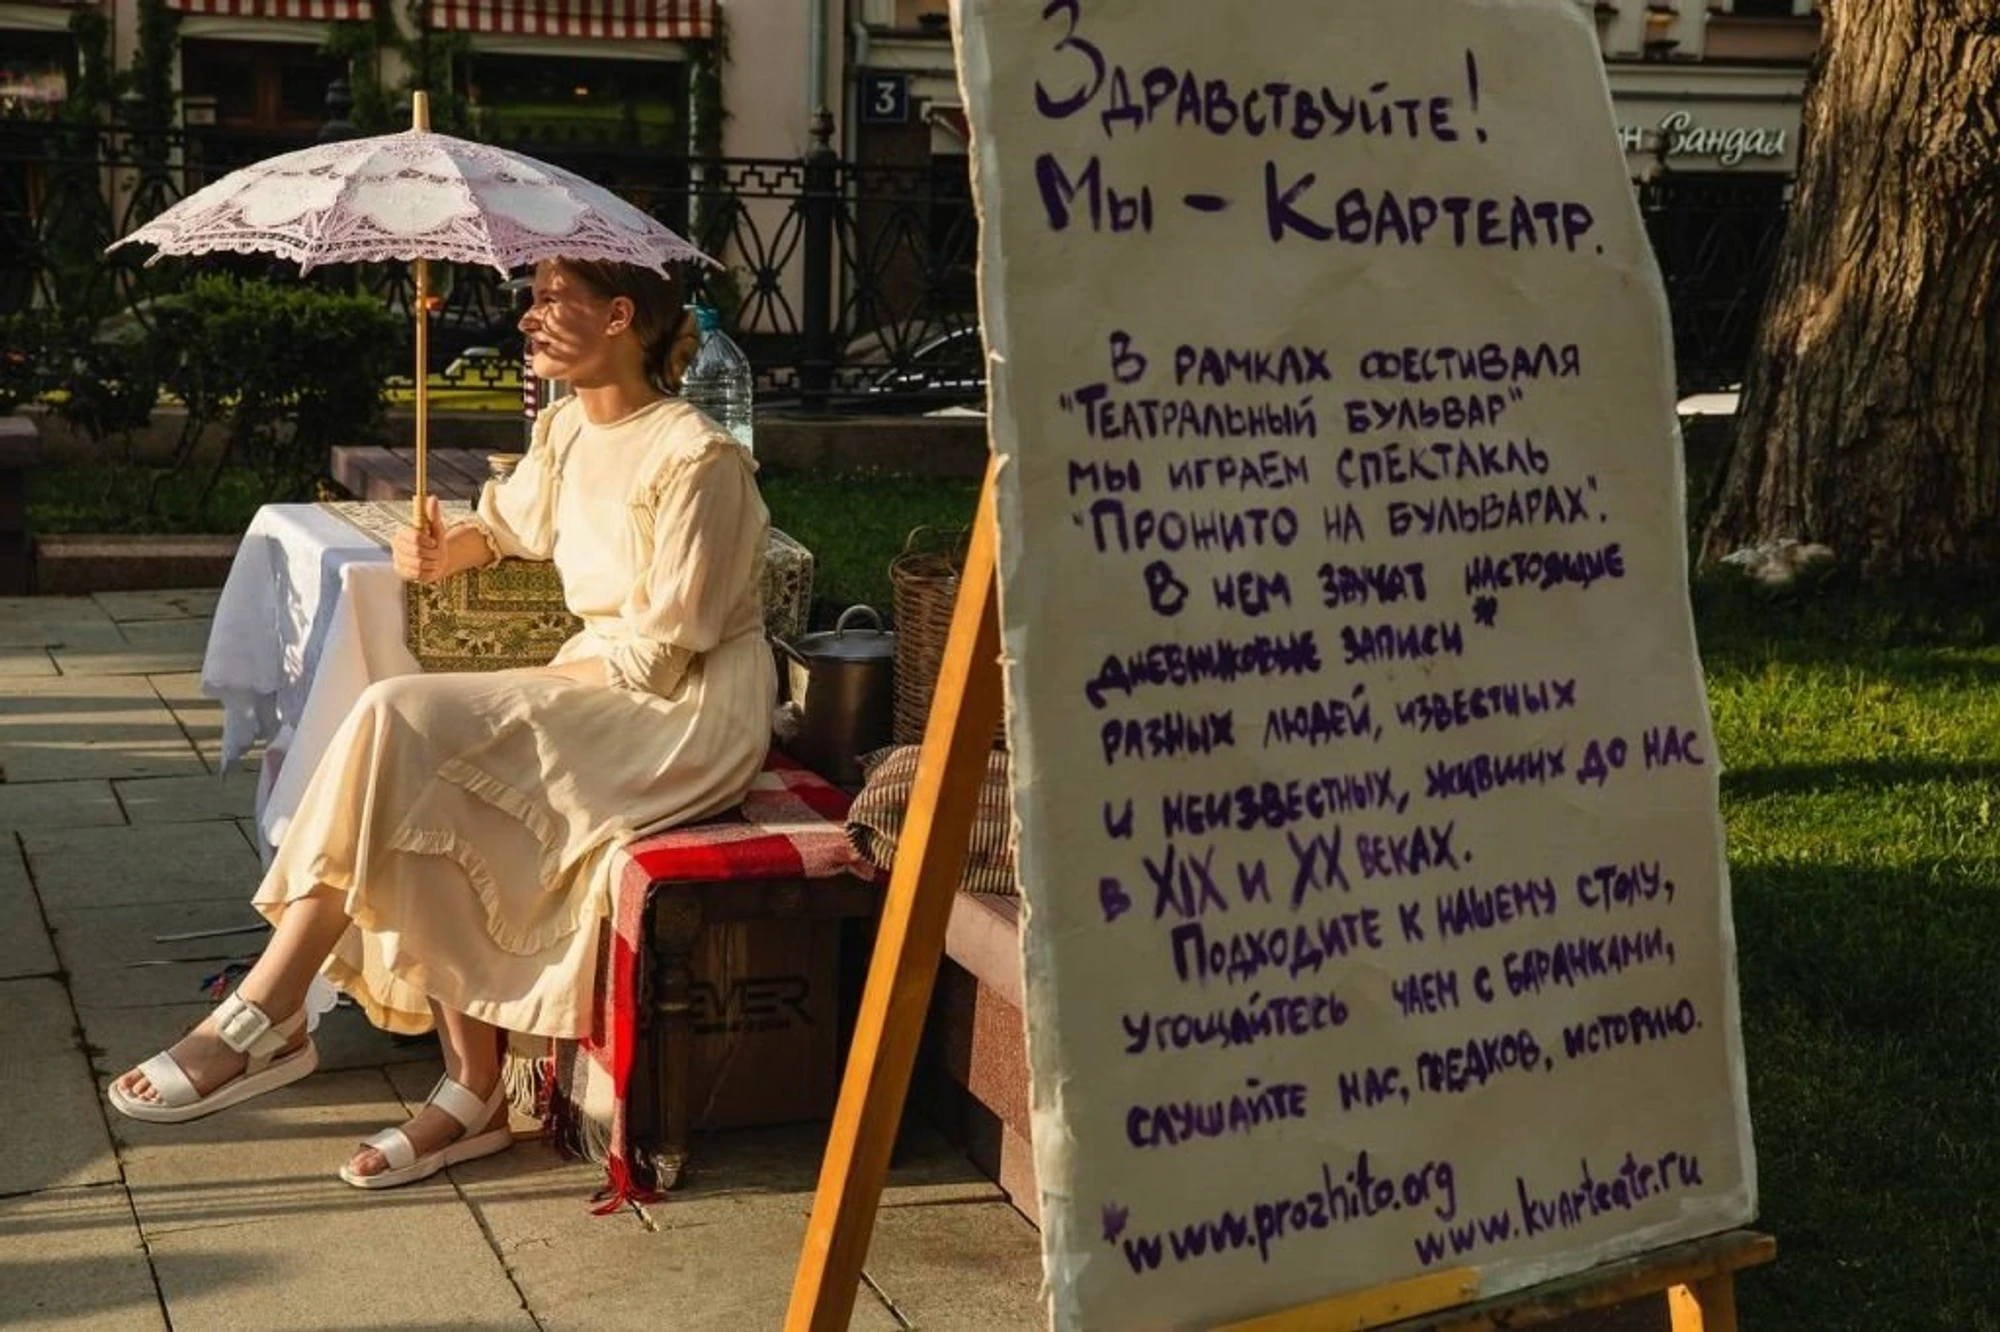 3
н Сандал
Здравствуйте!
Мы - Квартеатр.
В рамках фестиваля
"Театральный бульвар"
мы играем спектакль
"Прожито на бульварах".
В нем звучат настоящие
дневниковые записи*
разных людей, известных
и неизвестных, живших до нас
в XIX и XX веках.
Подходите к нашему столу,
угощайтесь чаем с баранками,
слушайте нас, предков, историю.
*www.prozhito.org
www.kvarteatr.ru